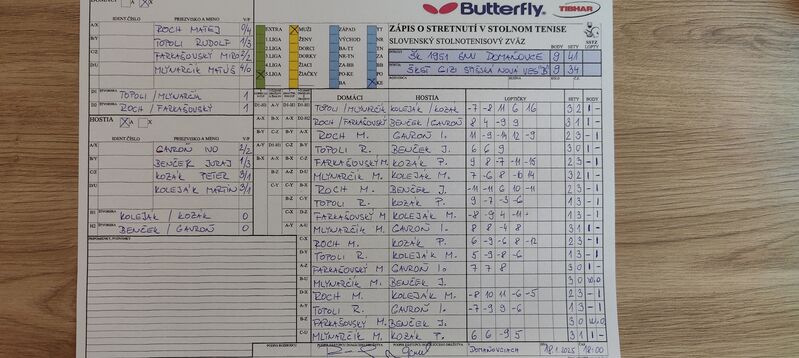 Butterfly TIBHAR
IDENT. ČÍSLO PRIEZVISKO A MENO V/P
A/X ROCH MATEJ 0/4
B/Y TOPOLI RUDOLF 1/3
C/Z FARKAŠOVSKÝ MIRO 2/2
D/U MLYNARČÍK MATÚŠ 4/0
D1 TOPOLI / MLYNARČÍK 1
D2 ROCH / FARKAŠOVSKÝ 1
HOSTIA A X
IDENT. ČÍSLO PRIEZVISKO A MENO V/P
A/X GAVROŇ IVO 2/2
B/Y BENČEK JURAJ 1/3
C/Z KOZÁK PETER 3/1
D/U KOLEJÁK MARTIN 3/1
H1 KOLEJÁK / KOZÁK 0
H2 BENČEK / GAVROŇ 0
EXTRA MUŽI ZÁPAD
I.LIGA ŽENY VÝCHOD
II.LIGA DORCI BA-TT
III.LIGA DORKY TN-NR
4.LIGA ŽIACI ZA-BB
5.LIGA ŽIAČKY PO-KE
BA KE
ZÁPIS O STRETNUTÍ V STOLNOM TENISE
SLOVENSKÝ STOLNOTENISOVÝ ZVÄZ
BODY SETY
ŠK 1951 BNV DOMAŇOVCE 9 41
ŠKST GIZI SPIŠSKÁ NOVÁ VES "B" 9 34
DOMÁCI HOSTIA LOPTIČKY SETY BODY
TOPOLI / MLYNARČÍK KOLEJÁK / KOZÁK -7 -8 11 6 16 3 2 1 -
ROCH / FARKAŠOVSKÝ BENČEK / GAVROŇ 8 4 -9 9 3 1 1 -
ROCH M. GAVROŇ I. 11 -9 -14 12 -9 2 3 - 1
TOPOLI R. BENČEK J. 6 6 9 3 0 1 -
FARKAŠOVSKÝ M. KOZÁK P. 9 8 -7 -11 -15 2 3 - 1
MLYNARČÍK M. KOLEJÁK M. 7 -6 8 -10 14 3 2 1 -
ROCH M. BENČEK J. -11 -11 6 10 -11 2 3 - 1
TOPOLI R. KOZÁK P. 9 -7 -3 -6 1 3 - 1
FARKAŠOVSKÝ M KOLEJÁK M. -8 -9 4 -11 1 3 - 1
MLYNARČÍK M. GAVROŇ I. 8 8 -4 8 3 1 1 -
ROCH M. KOZÁK P. 6 -9 -6 8 -12 2 3 - 1
TOPOLI R. KOLEJÁK M. 5 -9 -8 -6 1 3 - 1
FARKAŠOVSKÝ M GAVROŇ I. 7 7 8 3 0 1 -
MLYNARČÍK M. BENČEK J. 3 0 W.O
ROCH M. KOLEJÁK M. -8 10 11 -6 -5 2 3 - 1
TOPOLI R. GAVROŇ I. -7 -9 9 -6 1 3 - 1
FARKAŠOVSKÝ M. BENČEK J. 3 0 W.O
MLYNARČÍK M. KOZÁK P. 6 6 -9 5 3 1 1 -
DOMAŇOVCIACH 18.1.2025 18:00